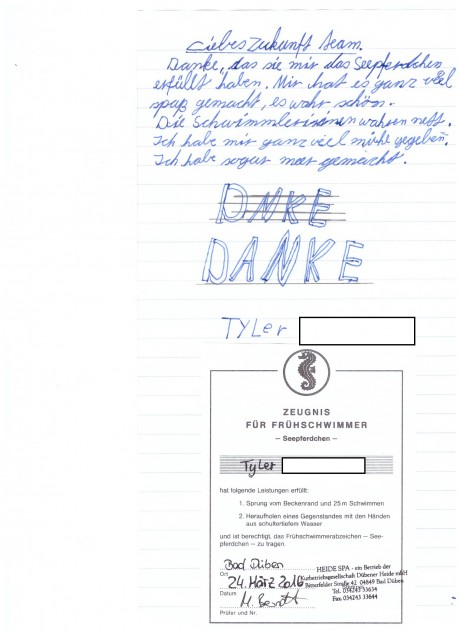 Liebes Zukunft team.
Danke, das sie mir das Seepferdchen
erfüllt haben. Mir hat es ganz viel
spaß gemacht, es wahr schön.
Die Schwimmlerisinen wahren nett.
Ich habe mir ganz viel mühe gegeben.
Ich habe sogar meer gemacht.
DNKE
DANKE
TYLer
ZEUGNIS
FÜR FRÜHSCHWIMMER
– Seepferdchen –
Tyler
hat folgende Leistungen erfüllt:
1. Sprung vom Beckenrand und 25 m Schwimmen
2. Heraufholen eines Gegenstandes mit den Händen
aus schultertiefem Wasser
und ist berechtigt, das Frühschwimmerabzeichen – See-
pferdchen – zu tragen.
Bad Düben
Ort
HEIDE SPA - ein Betrieb der
Kurbetriebsgesellschaft Dübener Heide mbH
Bitterfelder Straße 42 04849 Bad Düben
Tel. 034243 33634
Fax 034243 33644
24. März 2016
Datum
Prüfer und Nr.